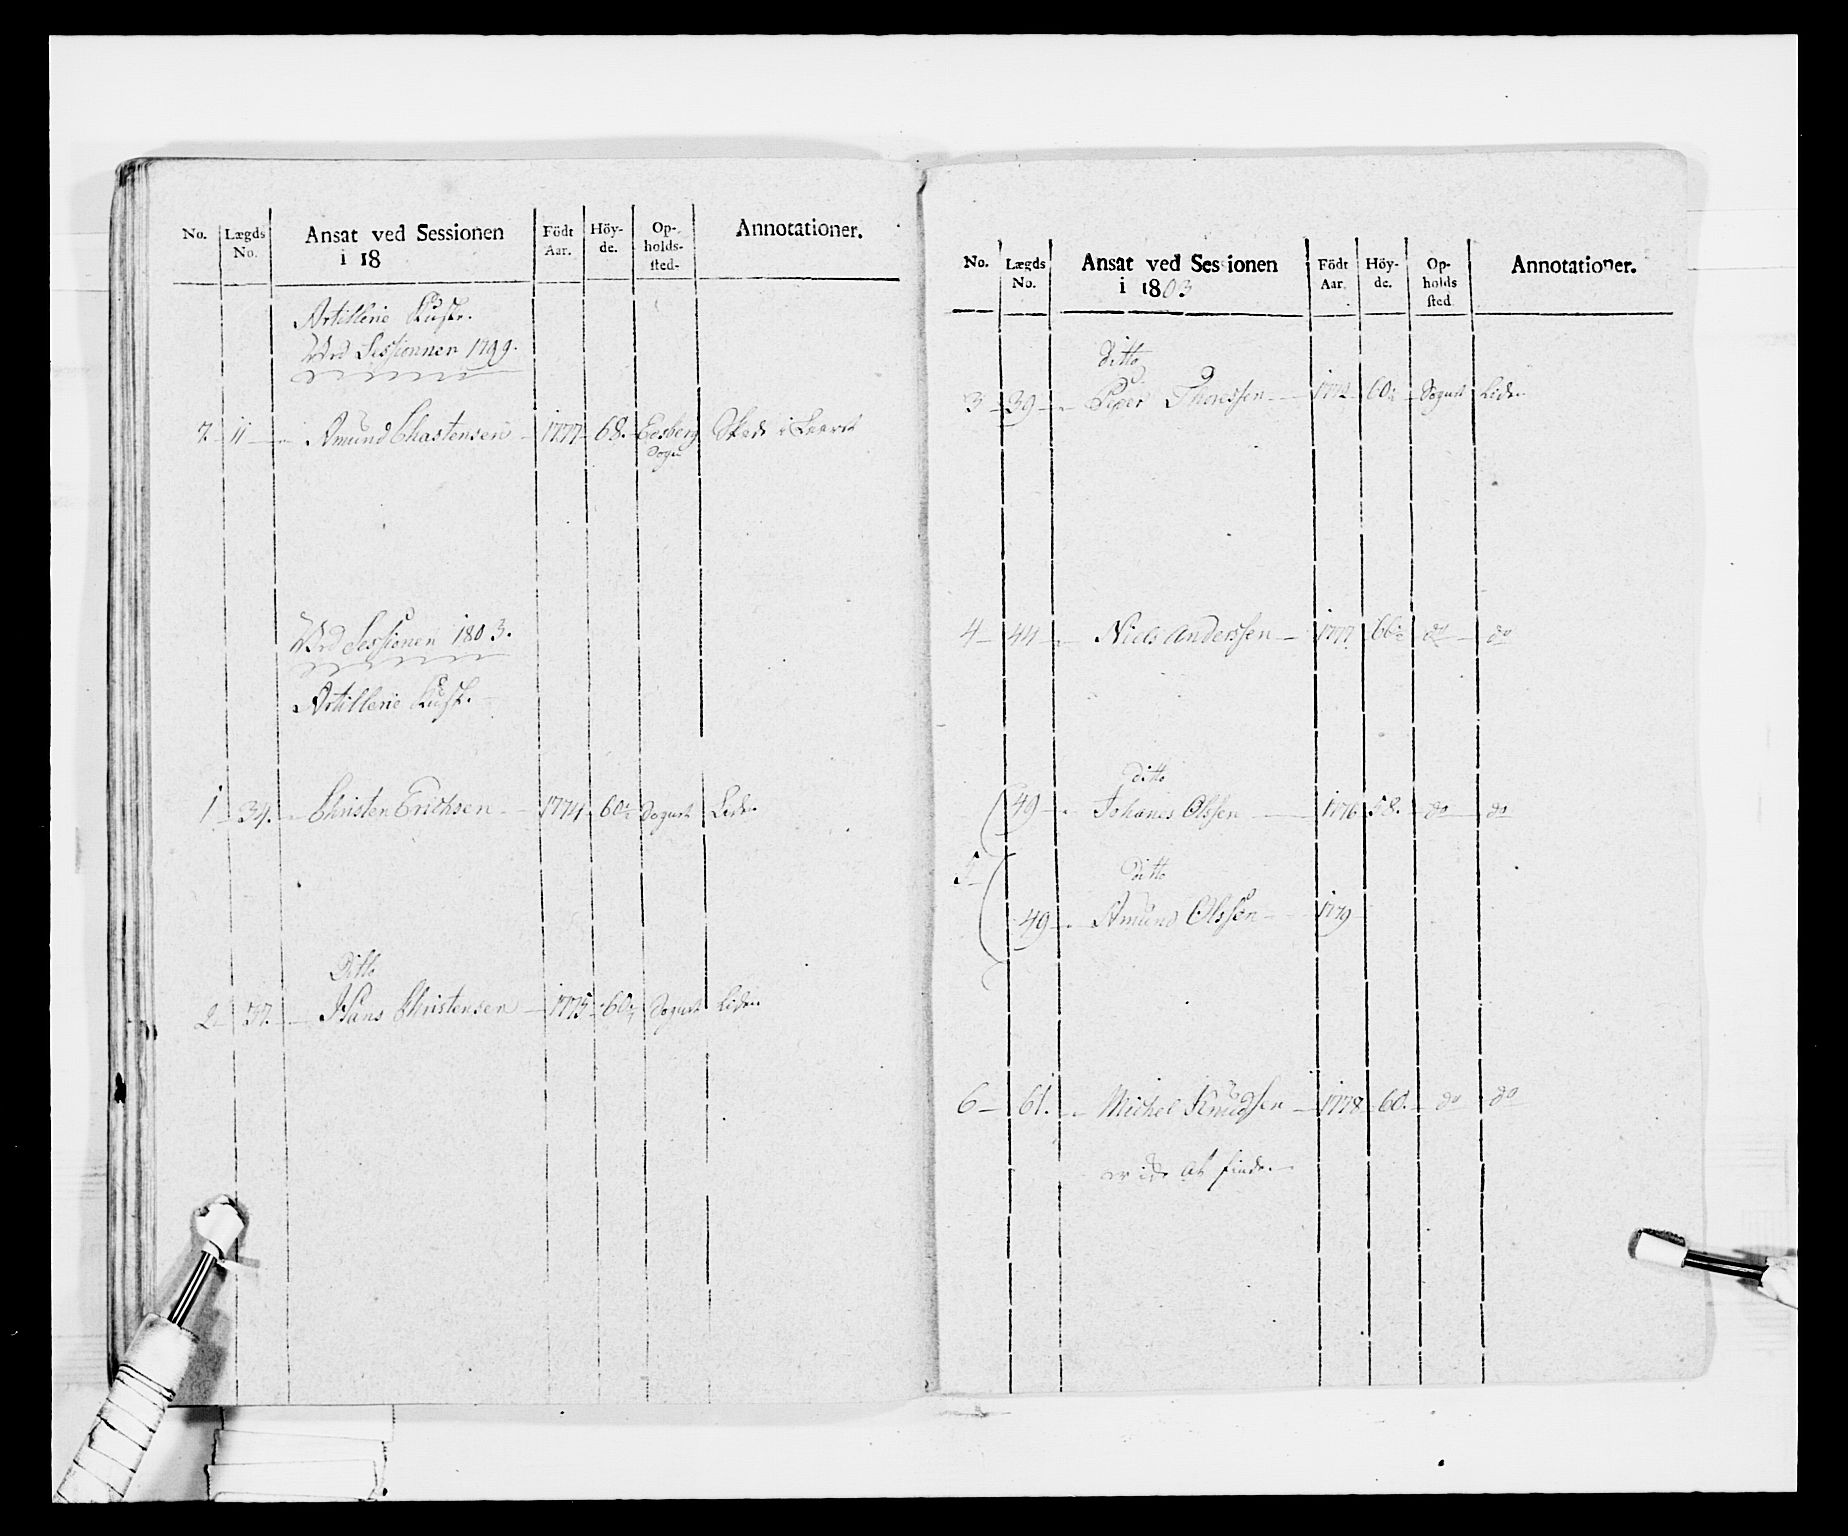 No. Lægds No. Ansat ved Sessionen i 18 Födt Aar. Höyde. Opholdssted. Annotationer.
Artillerie Kusk.
Ved Sessionnen 1799.
7. 11 Amund Chastensen 1777 68. Eesberg Sogn
Ved Sessionen 1803.
Artillerie Kusk.
1 34. Christen Erichsen 1774 60 Sognet Leder
Ditto
2 37. Hans Christensen 1775 60 Sognet Leder
No. Lægds No. Ansat ved Sessionen i 1803 Födt Aar. Höyde. Opholds sted Annotationer.
ditto
3 39 Peder Thoressen 1772 60 Sognet Leder
4 44 Niels Anderssen 1777 66 do do
ditto
49 Johanes Olssen 1776 58. do do
5 ditto
49 Amund Olssen 1779
6 61. Michel Knudssen 1778 60. do do
er ide at finde.